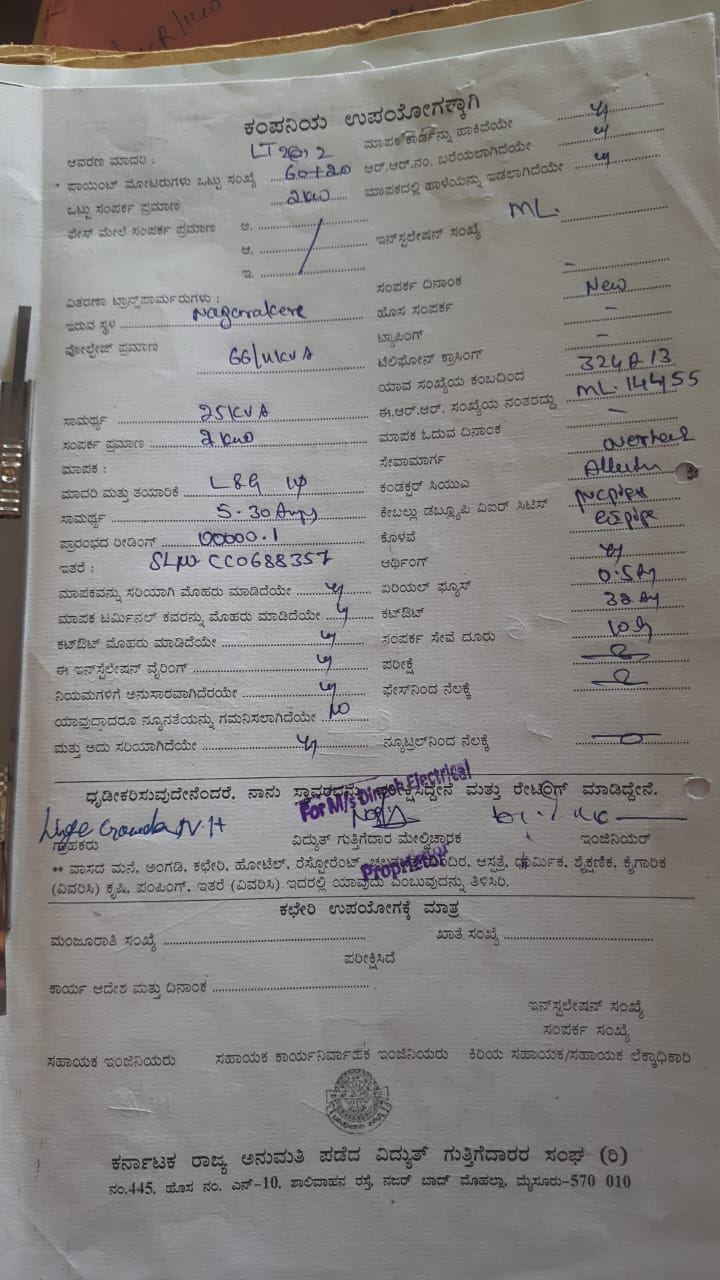 ಕಂಪನಿಯ ಉಪಯೋಗಕ್ಕಾಗಿ
ಆವರಣ ಮಾದರಿ : LT 2
ಮಾಪಕ ಕಾರ್ಡನ್ನು ಹಾಕಿದೆಯೇ
* ಪಾಯಿಂಟ್ ಮೋಟರುಗಳು ಒಟ್ಟು ಸಂಖ್ಯೆ 60+20
ಆರ್.ಆರ್.ನಂ. ಬರೆಯಲಾಗಿದೆಯೇ
ಒಟ್ಟು ಸಂಪರ್ಕ ಪ್ರಮಾಣ 2kw
ಮಾಪಕದಲ್ಲಿ ಹಾಳೆಯನ್ನು ಇಡಲಾಗಿದೆಯೇ
ಫೇಸ್ ಮೇಲೆ ಸಂಪರ್ಕ ಪ್ರಮಾಣ ಅ.
ಆ.
ಇ.
ಇನ್‌ಸ್ಟಲೇಷನ್ ಸಂಖ್ಯೆ ML.
ವಿತರಣಾ ಟ್ರಾನ್ಸ್‌ಪಾರ್ಮರುಗಳು :
ಸಂಪರ್ಕ ದಿನಾಂಕ –
ಇರುವ ಸ್ಥಳ Nagarakere
ಹೊಸ ಸಂಪರ್ಕ New
ವೋಲ್ಟೇಜ್ ಪ್ರಮಾಣ 66/11KVA
ಟ್ಯಾಪಿಂಗ್ –
ಟೆಲಿಫೋನ್ ಕ್ರಾಸಿಂಗ್ –
ಯಾವ ಸಂಖ್ಯೆಯ ಕಂಬದಿಂದ 324A13
ಸಾಮರ್ಥ್ಯ 25KVA
ಈ.ಆರ್.ಆರ್. ಸಂಖ್ಯೆಯ ನಂತರದ್ದು ML.14455
ಸಂಪರ್ಕ ಪ್ರಮಾಣ 2kw
ಮಾಪಕ ಓದುವ ದಿನಾಂಕ –
ಮಾಪಕ :
ಸೇವಾಮಾರ್ಗ overhead
ಮಾದರಿ ಮತ್ತು ತಯಾರಿಕೆ L&G
ಕಂಡಕ್ಟರ್ ಸಿಯುಎ
ಸಾಮರ್ಥ್ಯ 5-30Amps
ಕೇಬಲ್ಲು ಡಬ್ಲ್ಯೂಪಿ ವಿಐರ್ ಸಿಟಿಸ್
ಪ್ರಾರಂಭದ ರೀಡಿಂಗ್ 00000.1
ಕೊಳವೆ
ಇತರೆ : SLNo CC0688357
ಆರ್ಥಿಂಗ್
ಮಾಪಕವನ್ನು ಸರಿಯಾಗಿ ಮೊಹರು ಮಾಡಿದೆಯೇ
ಏರಿಯಲ್ ಫ್ಯೂಸ್
ಮಾಪಕ ಟರ್ಮಿನಲ್ ಕವರನ್ನು ಮೊಹರು ಮಾಡಿದೆಯೇ
ಕಟ್‌ಔಟ್
ಕಟ್‌ಔಟ್ ಮೊಹರು ಮಾಡಿದೆಯೇ
ಸಂಪರ್ಕ ಸೇವೆ ದೂರು
ಈ ಇನ್‌ಸ್ಟೆಲೇಷನ್ ವೈರಿಂಗ್
ಪರೀಕ್ಷೆ
ನಿಯಮಗಳಿಗೆ ಅನುಸಾರವಾಗಿದೆರಯೇ
ಫೇಸ್‌ನಿಂದ ನೆಲಕ್ಕೆ
ಯಾವುದ್ದಾದರೂ ನ್ಯೂನತೆಯನ್ನು ಗಮನಿಸಲಾಗಿದೆಯೇ No
ಮತ್ತು ಅದು ಸರಿಯಾಗಿದೆಯೇ
ನ್ಯೂಟ್ರಲ್‌ನಿಂದ ನೆಲಕ್ಕೆ
ಧೃಡೀಕರಿಸುವುದೇನೆಂದರೆ, ನಾನು ಸ್ಥಾವರವನ್ನು ಪರೀಕ್ಷಿಸಿದ್ದೇನೆ ಮತ್ತು ರೇಟಿಂಗ್ ಮಾಡಿದ್ದೇನೆ.
For M/s Dinesh Electrical
ಗ್ರಾಹಕರು ವಿದ್ಯುತ್ ಗುತ್ತಿಗೆದಾರ ಮೇಲ್ವಿಚಾರಕ ಇಂಜಿನಿಯರ್
** ವಾಸದ ಮನೆ, ಅಂಗಡಿ, ಕಛೇರಿ, ಹೋಟೆಲ್, ರೆಸ್ಟೋರೆಂಟ್, ಆಸ್ಪತ್ರೆ, ಧಾರ್ಮಿಕ, ಶೈಕ್ಷಣಿಕ, ಕೈಗಾರಿಕ
Proprietor
(ವಿವರಿಸಿ) ಕೃಷಿ, ಪಂಪಿಂಗ್, ಇತರೆ (ವಿವರಿಸಿ) ಇದರಲ್ಲಿ ಯಾವುದು ಎಂಬುವುದನ್ನು ತಿಳಿಸಿರಿ.
ಕಛೇರಿ ಉಪಯೋಗಕ್ಕೆ ಮಾತ್ರ
ಮಂಜೂರಾತಿ ಸಂಖ್ಯೆ
ಖಾತೆ ಸಂಖ್ಯೆ
ಪರೀಕ್ಷಿಸಿದೆ
ಕಾರ್ಯ ಆದೇಶ ಮತ್ತು ದಿನಾಂಕ
ಇನ್‌ಸ್ಟಲೇಷನ್ ಸಂಖ್ಯೆ
ಸಂಪರ್ಕ ಸಂಖ್ಯೆ
ಸಹಾಯಕ ಇಂಜಿನಿಯರು ಸಹಾಯಕ ಕಾರ್ಯನಿರ್ವಾಹಕ ಇಂಜಿನಿಯರು ಕಿರಿಯ ಸಹಾಯಕ/ಸಹಾಯಕ ಲೆಕ್ಕಾಧಿಕಾರಿ
ಕರ್ನಾಟಕ ರಾಜ್ಯ ಅನುಮತಿ ಪಡೆದ ವಿದ್ಯುತ್ ಗುತ್ತಿಗೆದಾರರ ಸಂಘ (ರಿ)
ನಂ.445, ಹೊಸ ನಂ. ಎನ್-10, ಶಾಲಿವಾಹನ ರಸ್ತೆ, ನಜರ್ ಬಾದ್ ಮೊಹಲ್ಲಾ, ಮೈಸೂರು-570 010